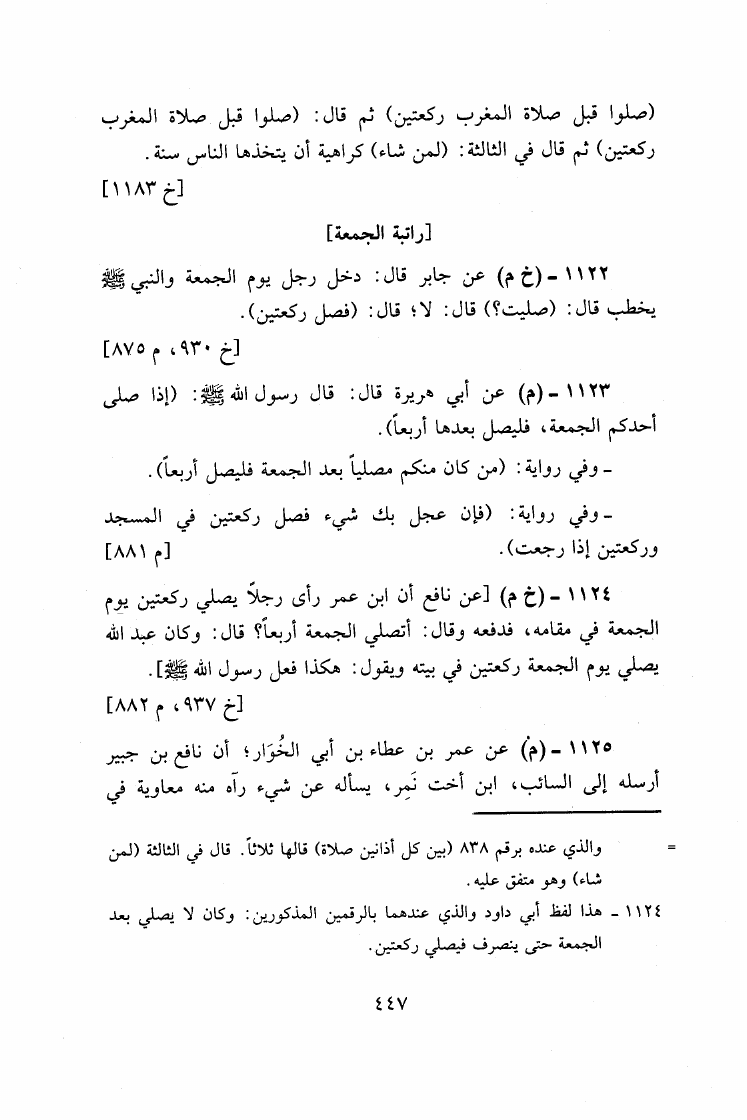 (صلوا قبل صلاة المغرب ركعتين) ثم قال: (صلوا قبل صلاة المغرب
ركعتين) ثم قال في الثالثة: (لمن شاء) كراهية أن يتخذها الناس سنة.
[خ ١١٨٣]
[راتبة الجمعة]
١١٢٢ - (خ م) عن جابر قال: دخل رجل يوم الجمعة والنبي ﷺ
يخطب قال: (صليت؟) قال: لا؛ قال: (فصل ركعتين).
[خ ٩٣٠، م ٨٧٥]
١١٢٣ - (م) عن أبي هريرة قال: قال رسول الله ﷺ: (إذا صلى
أحدكم الجمعة، فليصل بعدها أربعاً).
- وفي رواية: (من كان منكم مصلياً بعد الجمعة فليصل أربعاً).
- وفي رواية: (فإن عجل بك شيء فصل ركعتين في المسجد
وركعتين إذا رجعت). [م ٨٨١]
١١٢٤ - (خ م) [عن نافع أن ابن عمر رأى رجلاً يصلي ركعتين يوم
الجمعة في مقامه، فدفعه وقال: أتصلي الجمعة أربعاً؟ قال: وكان عبد الله
يصلي يوم الجمعة ركعتين في بيته ويقول: هكذا فعل رسول الله ﷺ].
[خ ٩٣٧، م ٨٨٢]
١١٢٥ - (م) عن عمر بن عطاء بن أبي الخُوَار؛ أن نافع بن جبير
أرسله إلى السائب، ابن أخت نَمِر، يسأله عن شيء رآه منه معاوية في
= والذي عنده برقم ٨٣٨ (بين كل أذانين صلاة) قالها ثلاثاً. قال في الثالثة (لمن
شاء) وهو متفق عليه.
١١٢٤ - هذا لفظ أبي داود والذي عندهما بالرقمين المذكورين: وكان لا يصلي بعد
الجمعة حتى ينصرف فيصلي ركعتين.
٤٤٧